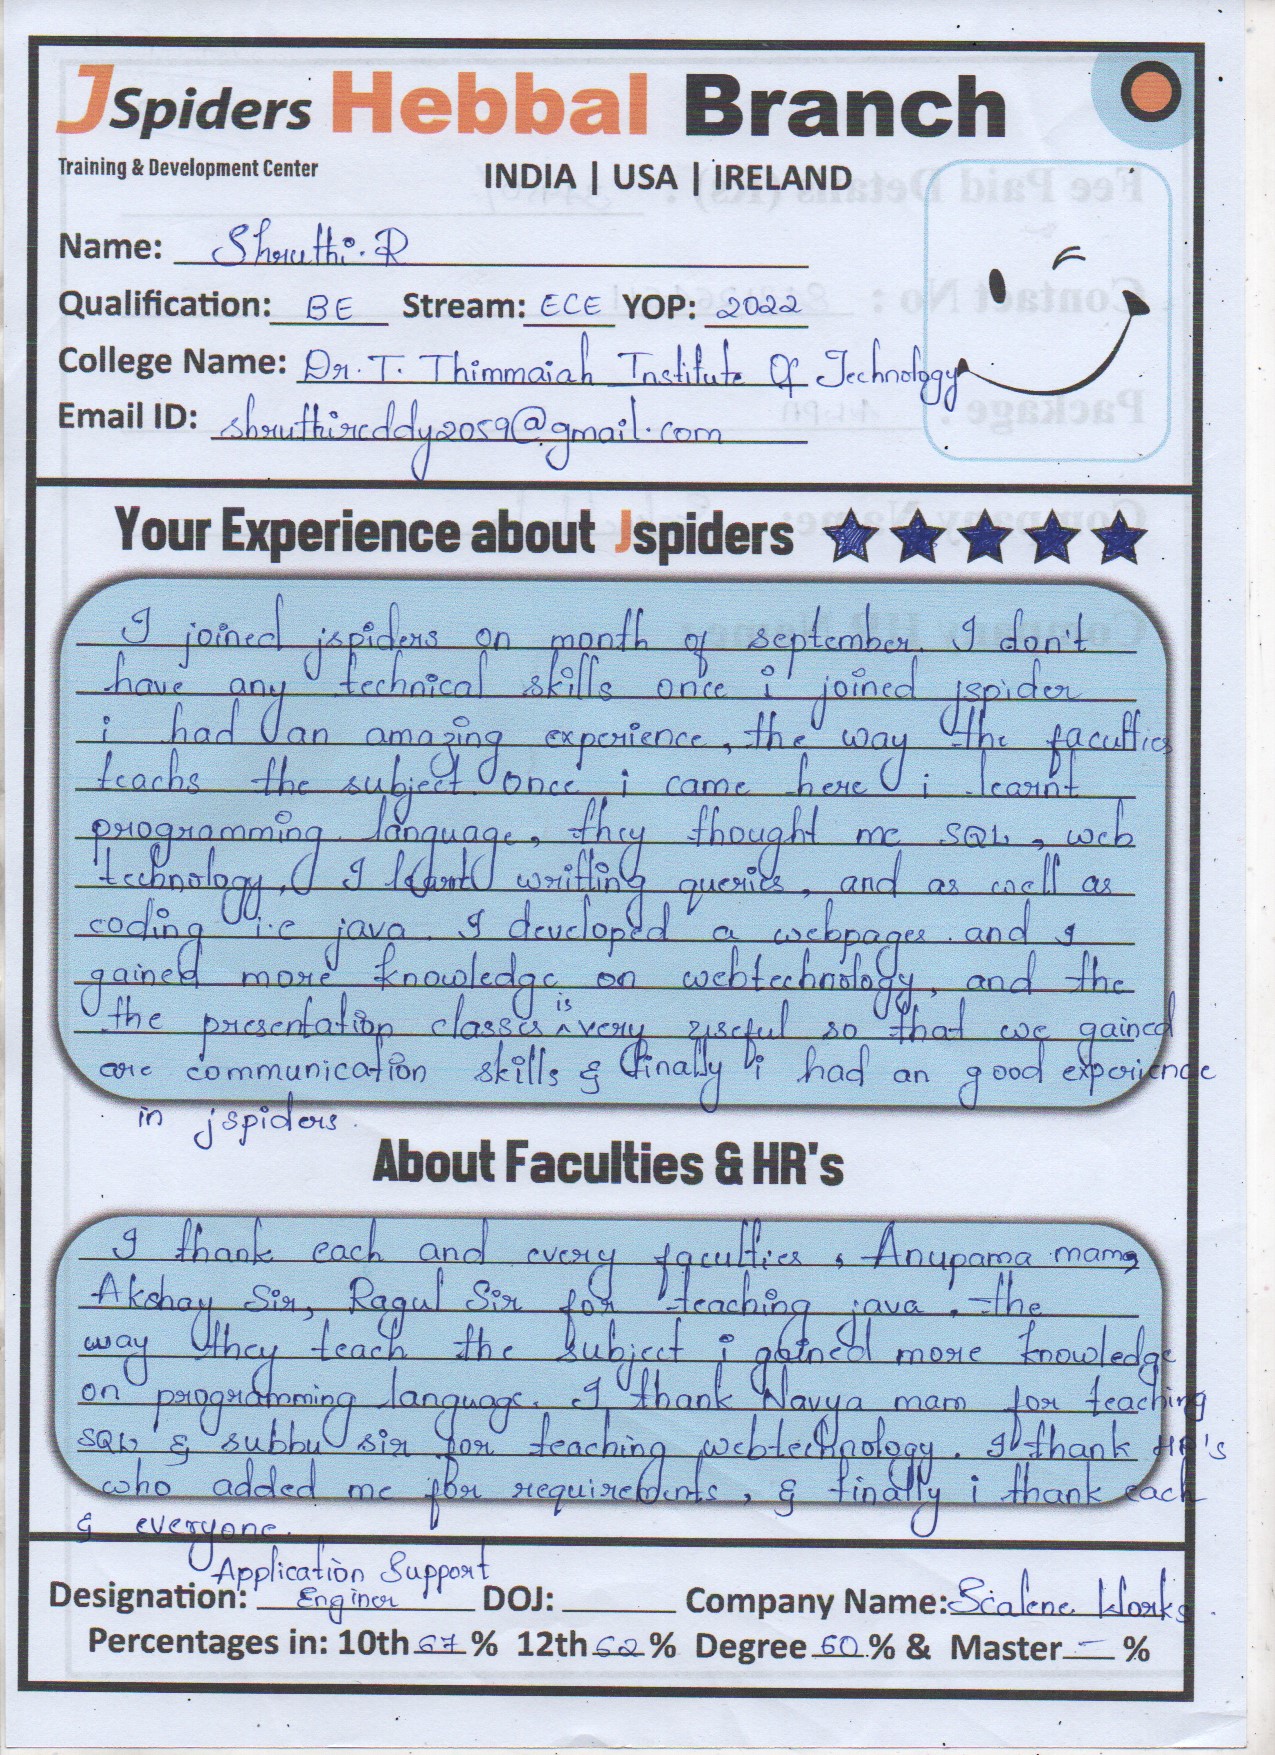 JSpiders Hebbal Branch
Training & Development Center
INDIA | USA | IRELAND
Name: Shruthi.R
Qualification: BE Stream: ECE YOP: 2022
College Name: Dr. T. Thimmaiah Institute Of Technology
Email ID: shruthireddy2059@gmail.com
Your Experience about Jspiders
I joined jspiders on month of september. I don't
have any technical skills once i joined jspider
i had an amazing experience, the way the faculties
teachs the subject once i came here i learnt
programming language, they thought me SQL, web
technology, I learnt writting queries, and as well as
coding i.e java. I developed a webpages and I
gained more knowledge on webtechnology, and the
the presentation classes is very useful so that we gained
are communication skills & finally i had an good experience
in jspiders.
About Faculties & HR's
I thank each and every faculties, Anupama mam,
Akshay Sir, Ragul Sir for teaching java. the
way they teach the subject i gained more knowledge
on programming language. I thank Navya mam for teaching
SQL & subbu sir for teaching webtechnology. I thank HR's
who added me for requirements, & finally i thank each
& everyone.
Application Support
Designation: Enginer DOJ: Company Name: Scalene Works.
Percentages in: 10th 67 % 12th 62 % Degree 60 % & Master - %